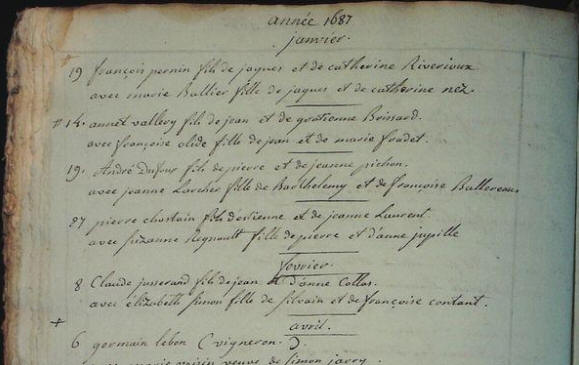 année 1687
janvier.
19 françois pernin fils de jaques et de catherine Riverioux
avec marie Ballier fille de jaques et de catherine nez.
# 14. annet vallery fils de jean et de gratienne Boissard.
avec françoise olide fille de jean et de marie fradet.
19. André Dufour fils de pierre et de jeanne pichon.
avec jeanne Larcher fille de Barthelemy et de françoise
27 pierre chastain fils d'estienne et de jeanne Laurent
avec suzanne Regnault fille de pierre et d'anne jupille
fevrier.
8 Claude jusserand fils de jean et d'anne Collas.
avec élizabeth simon fille de silvain et de françoise contant.
avril.
6 germain lebon (vigneron.)
avec marie voisin veuve de simon jarry.